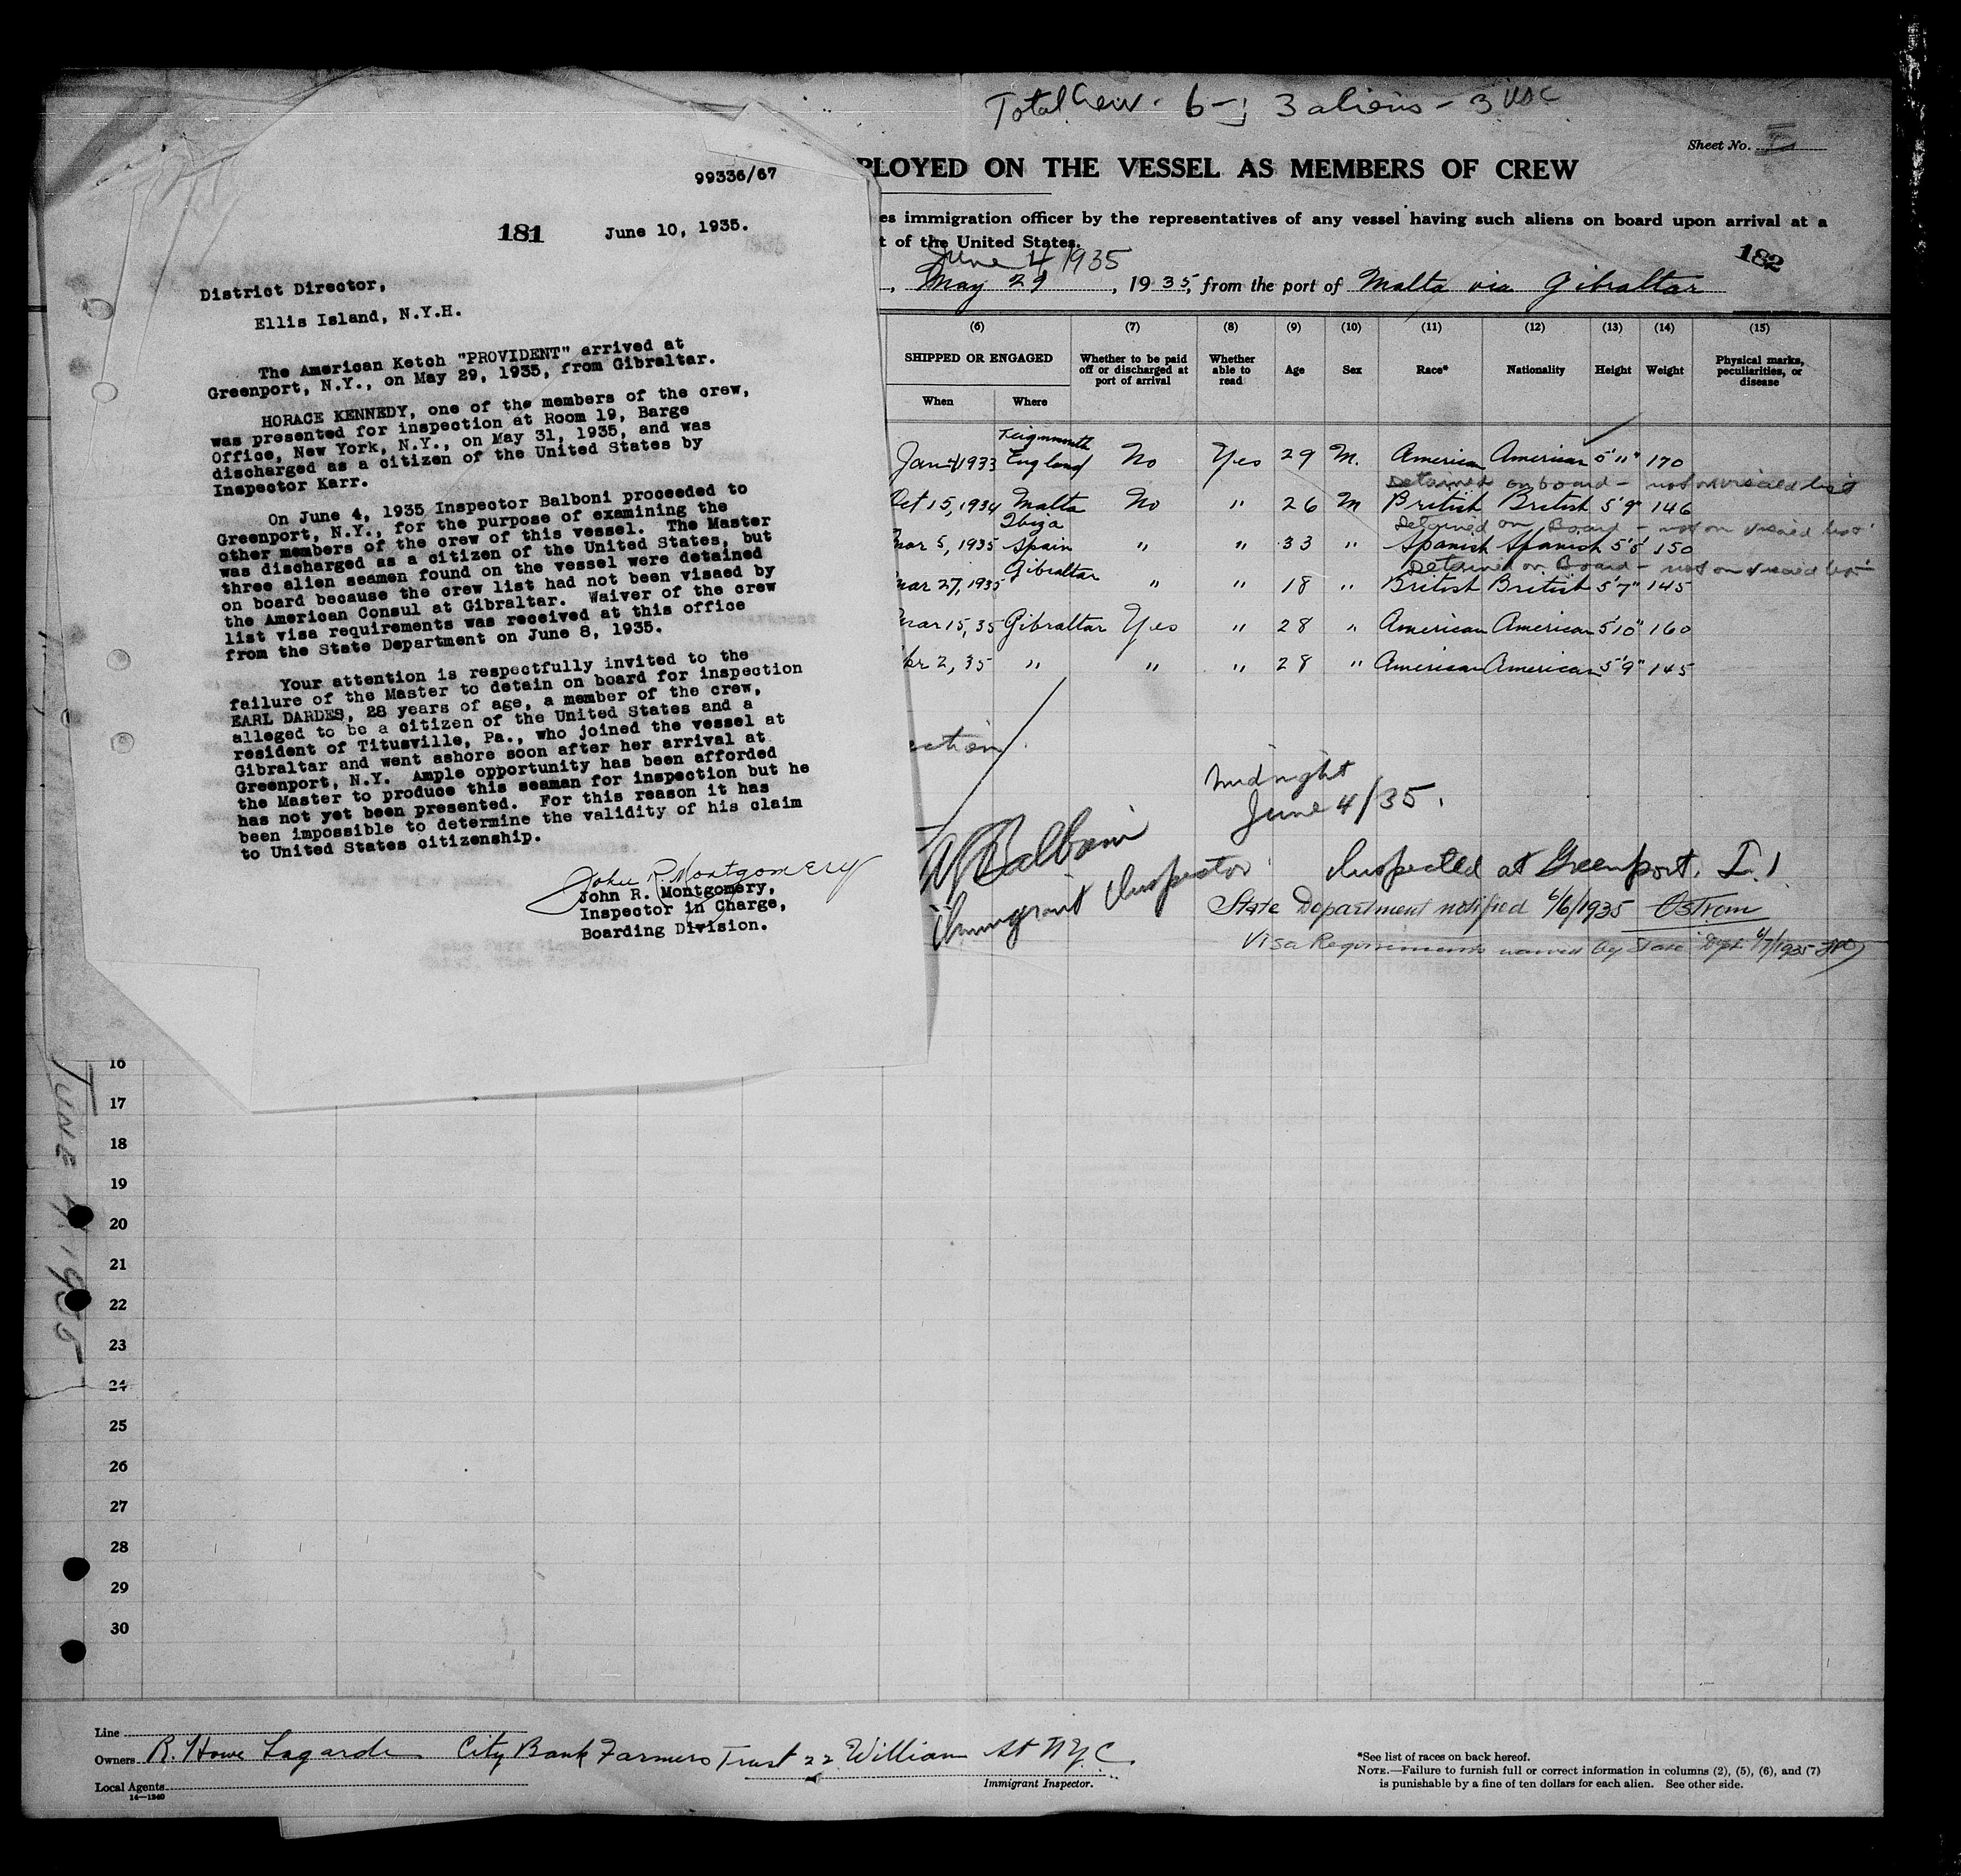 Total Crew - 6 - 3 aliens - 3 USC
Sheet No. I
PLOYED ON THE VESSEL AS MEMBERS OF CREW
es immigration officer by the representatives of any vessel having such aliens on board upon arrival at a
t of the United States.
182
June 4 1935
, May 29, 1935, from the port of Malta via Gibraltar
99336/67
181 June 10, 1935.
District Director,
Ellis Island, N.Y.H.
The American Ketch "PROVIDENT" arrived at
Greenport, N.Y., on May 29, 1935, from Gibraltar.
HORACE KENNEDY, one of the members of the crew,
was presented for inspection at Room 19, Barge
Office, New York, N.Y., on May 31, 1935, and was
discharged as a citizen of the United States by
Inspector Karr.
On June 4, 1935 Inspector Balboni proceeded to
Greenport, N.Y., for the purpose of examining the
other members of the crew of this vessel. The Master
was discharged as a citizen of the United States, but
three alien seamen found on the vessel were detained
on board because the crew list had not been visaed by
the American Consul at Gibraltar. Waiver of the crew
list visa requirements was received at this office
from the State Department on June 8, 1935.
Your attention is respectfully invited to the
failure of the Master to detain on board for inspection
EARL DARDES, 28 years of age, a member of the crew,
alleged to be a citizen of the United States and a
resident of Titusville, Pa., who joined the vessel at
Gibraltar and went ashore soon after her arrival at
Greenport, N.Y. Ample opportunity has been afforded
the Master to produce this seaman for inspection but he
has not yet been presented. For this reason it has
been impossible to determine the validity of his claim
to United States citizenship.
John R. Montgomery
John R. Montgomery,
Inspector in Charge,
Boarding Division.
(6) (7) (8) (9) (10) (11) (12) (13) (14) (15)
SHIPPED OR ENGAGED
When Where
Whether to be paid
off or discharged at
port of arrival
Whether
able to
read
Age Sex Race* Nationality Height Weight
Physical marks,
peculiarities, or
disease
Teignmouth
Jan 4 1933 England No Yes 29 M. American American 5'11" 170
Detained on board - not on visaed list
Oct 15, 1934 Malta No " 26 M British British 5'9" 146
Detained on Board - not on visaed list
Ibiza
Mar 5, 1935 Spain " " 33 " Spanish Spanish 5'8" 150
Detained on Board - not on visaed list
Gibraltar
Mar 27, 1935 " " 18 " British British 5'7" 145
Mar 15, 35 Gibraltar Yes " 28 " American American 5'10" 160
pr 2, 35 " " " 28 " American American 5'9" 145
ection
Midnight
June 4/35.
Balboni
Immigrant Inspector
Inspected at Greenport, L.I.
State Department notified 6/6/1935 Ostrom
Visa Requirements waived by State Dept. 6/7/1935
16
17
18
19
20
21
22
23
24
25
26
27
28
29
30
JUNE 4 1935
Line
Owners R. Howe Lagarde City Bank Farmers Trust 22 William St N.Y.C.
Local Agents
14—1240
Immigrant Inspector.
*See list of races on back hereof.
NOTE.—Failure to furnish full or correct information in columns (2), (5), (6), and (7)
is punishable by a fine of ten dollars for each alien. See other side.